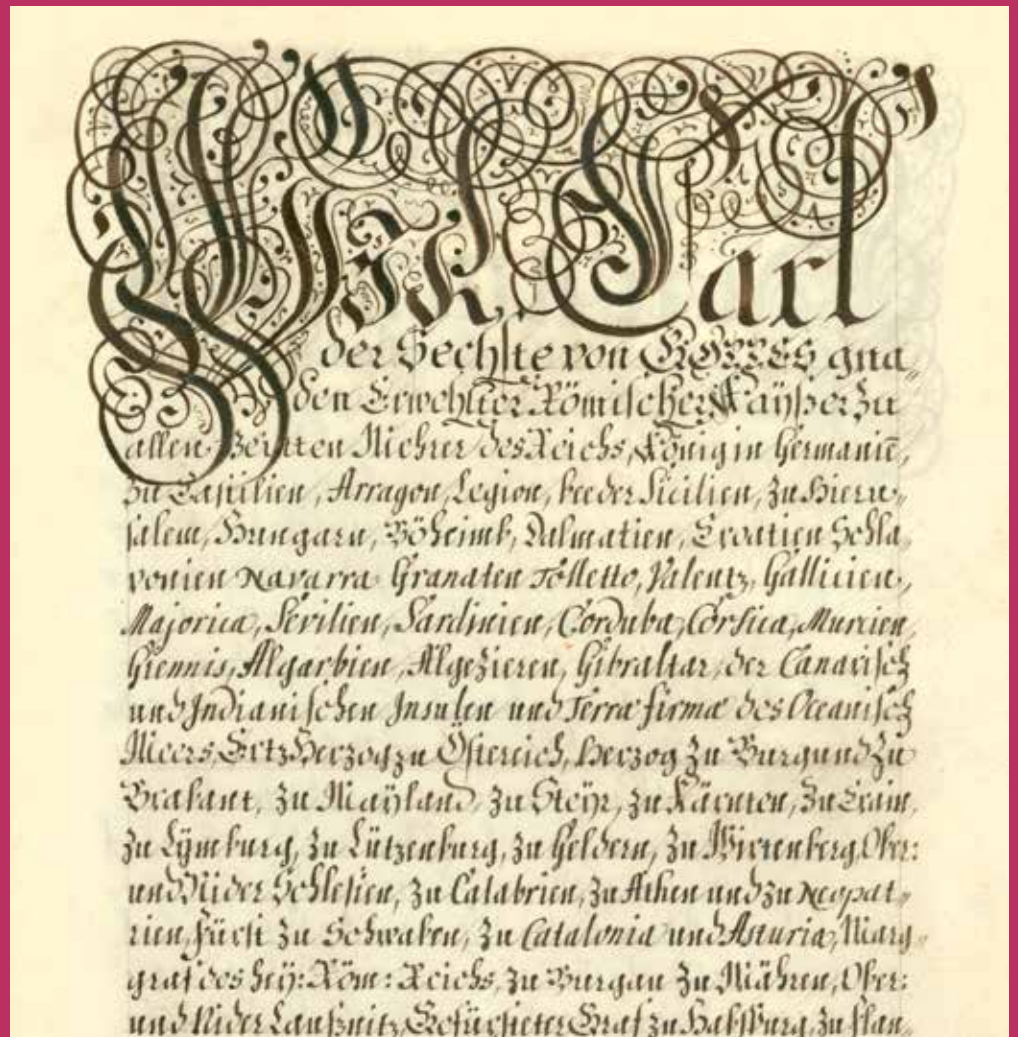 Wir Carl
der Sechste von GOTTES gna„
den Erwehlter Römischer Kaÿßer zu
allen Zeitten Mehrer des Reichs, König in Germaniē,
zu Castilien, Arragon, Legion, beeder Sicilien, zu Hieru„
salem, Hungarn, Böheimb, Dalmatien, Croatien Schla„
vonien Navarra Granaten Tolletto, Valentz, Gallicien,
Majorica, Sevilien, Sardinien, Corduba, Corsica, Murcien,
Giennis, Algarbien, Algezieren, Gibraltar, der Canarisch
und Indianischen Insulen und Terra firma des Oceanisch
Meers, Ertz Herzog zu Östereich, Herzog zu Burgund zu
Brabant, zu Maÿland, zu Steÿr, zu Kärnten, zu Crain,
zu Lÿmburg, zu Lützenburg, zu Geldern, zu Wirtenberg, Ober:
und Nider Schlesien, zu Calabrien, zu Athen und zu Neopat„
rien, Fürst zu Schwaben, zu Catalonia und Asturia, Marg„
graf des heÿ: Röm: Reichs, zu Burgau zu Mähren, Ober:
und Nider Laußnitz, Gefürsteter Graf zu Habsburg, zu Flan„